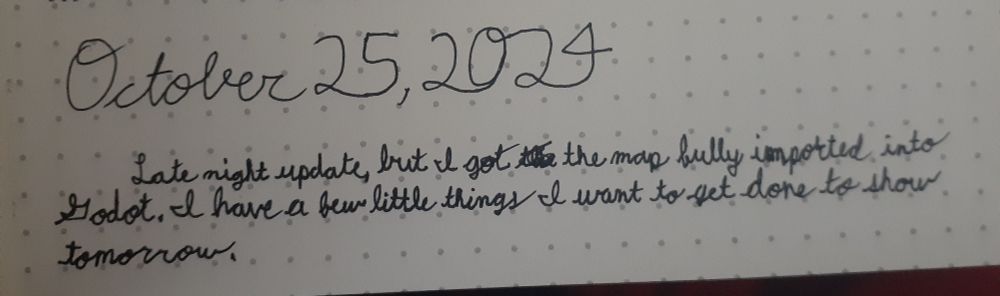 October 25, 2024
Late night update, but I got the map fully imported into
Godot. I have a few little things I want to get done to show
tomorrow.